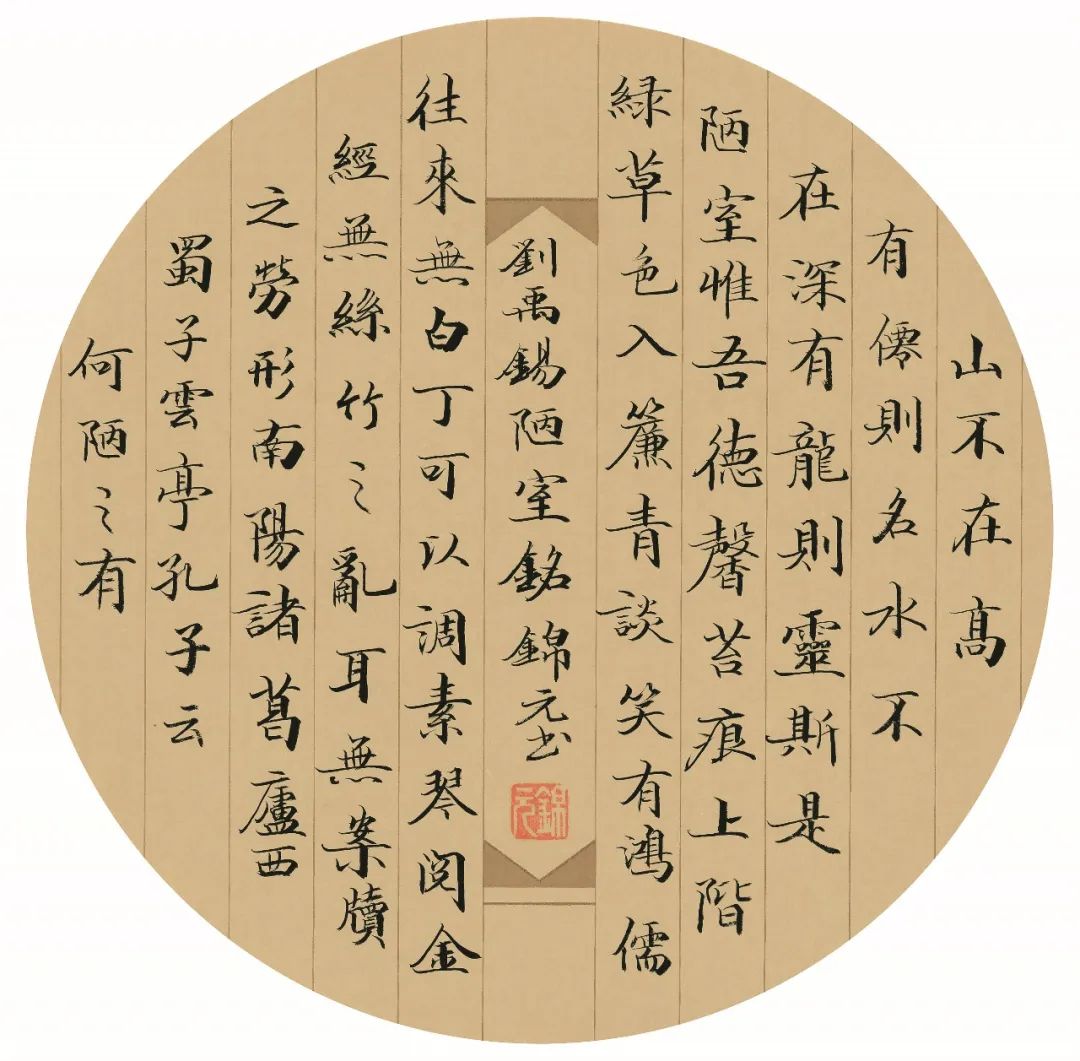 山不在高
有僊則名水不
在深有龍則靈斯是
陋室惟吾德馨苔痕上階
緑草色入簾青談笑有鴻儒
往來無白丁可以調素琴閱金
經無絲竹之亂耳無案牘
之勞形南陽諸葛廬西
蜀子雲亭孔子云
何陋之有
劉禹錫陋室銘錦元书
錦元